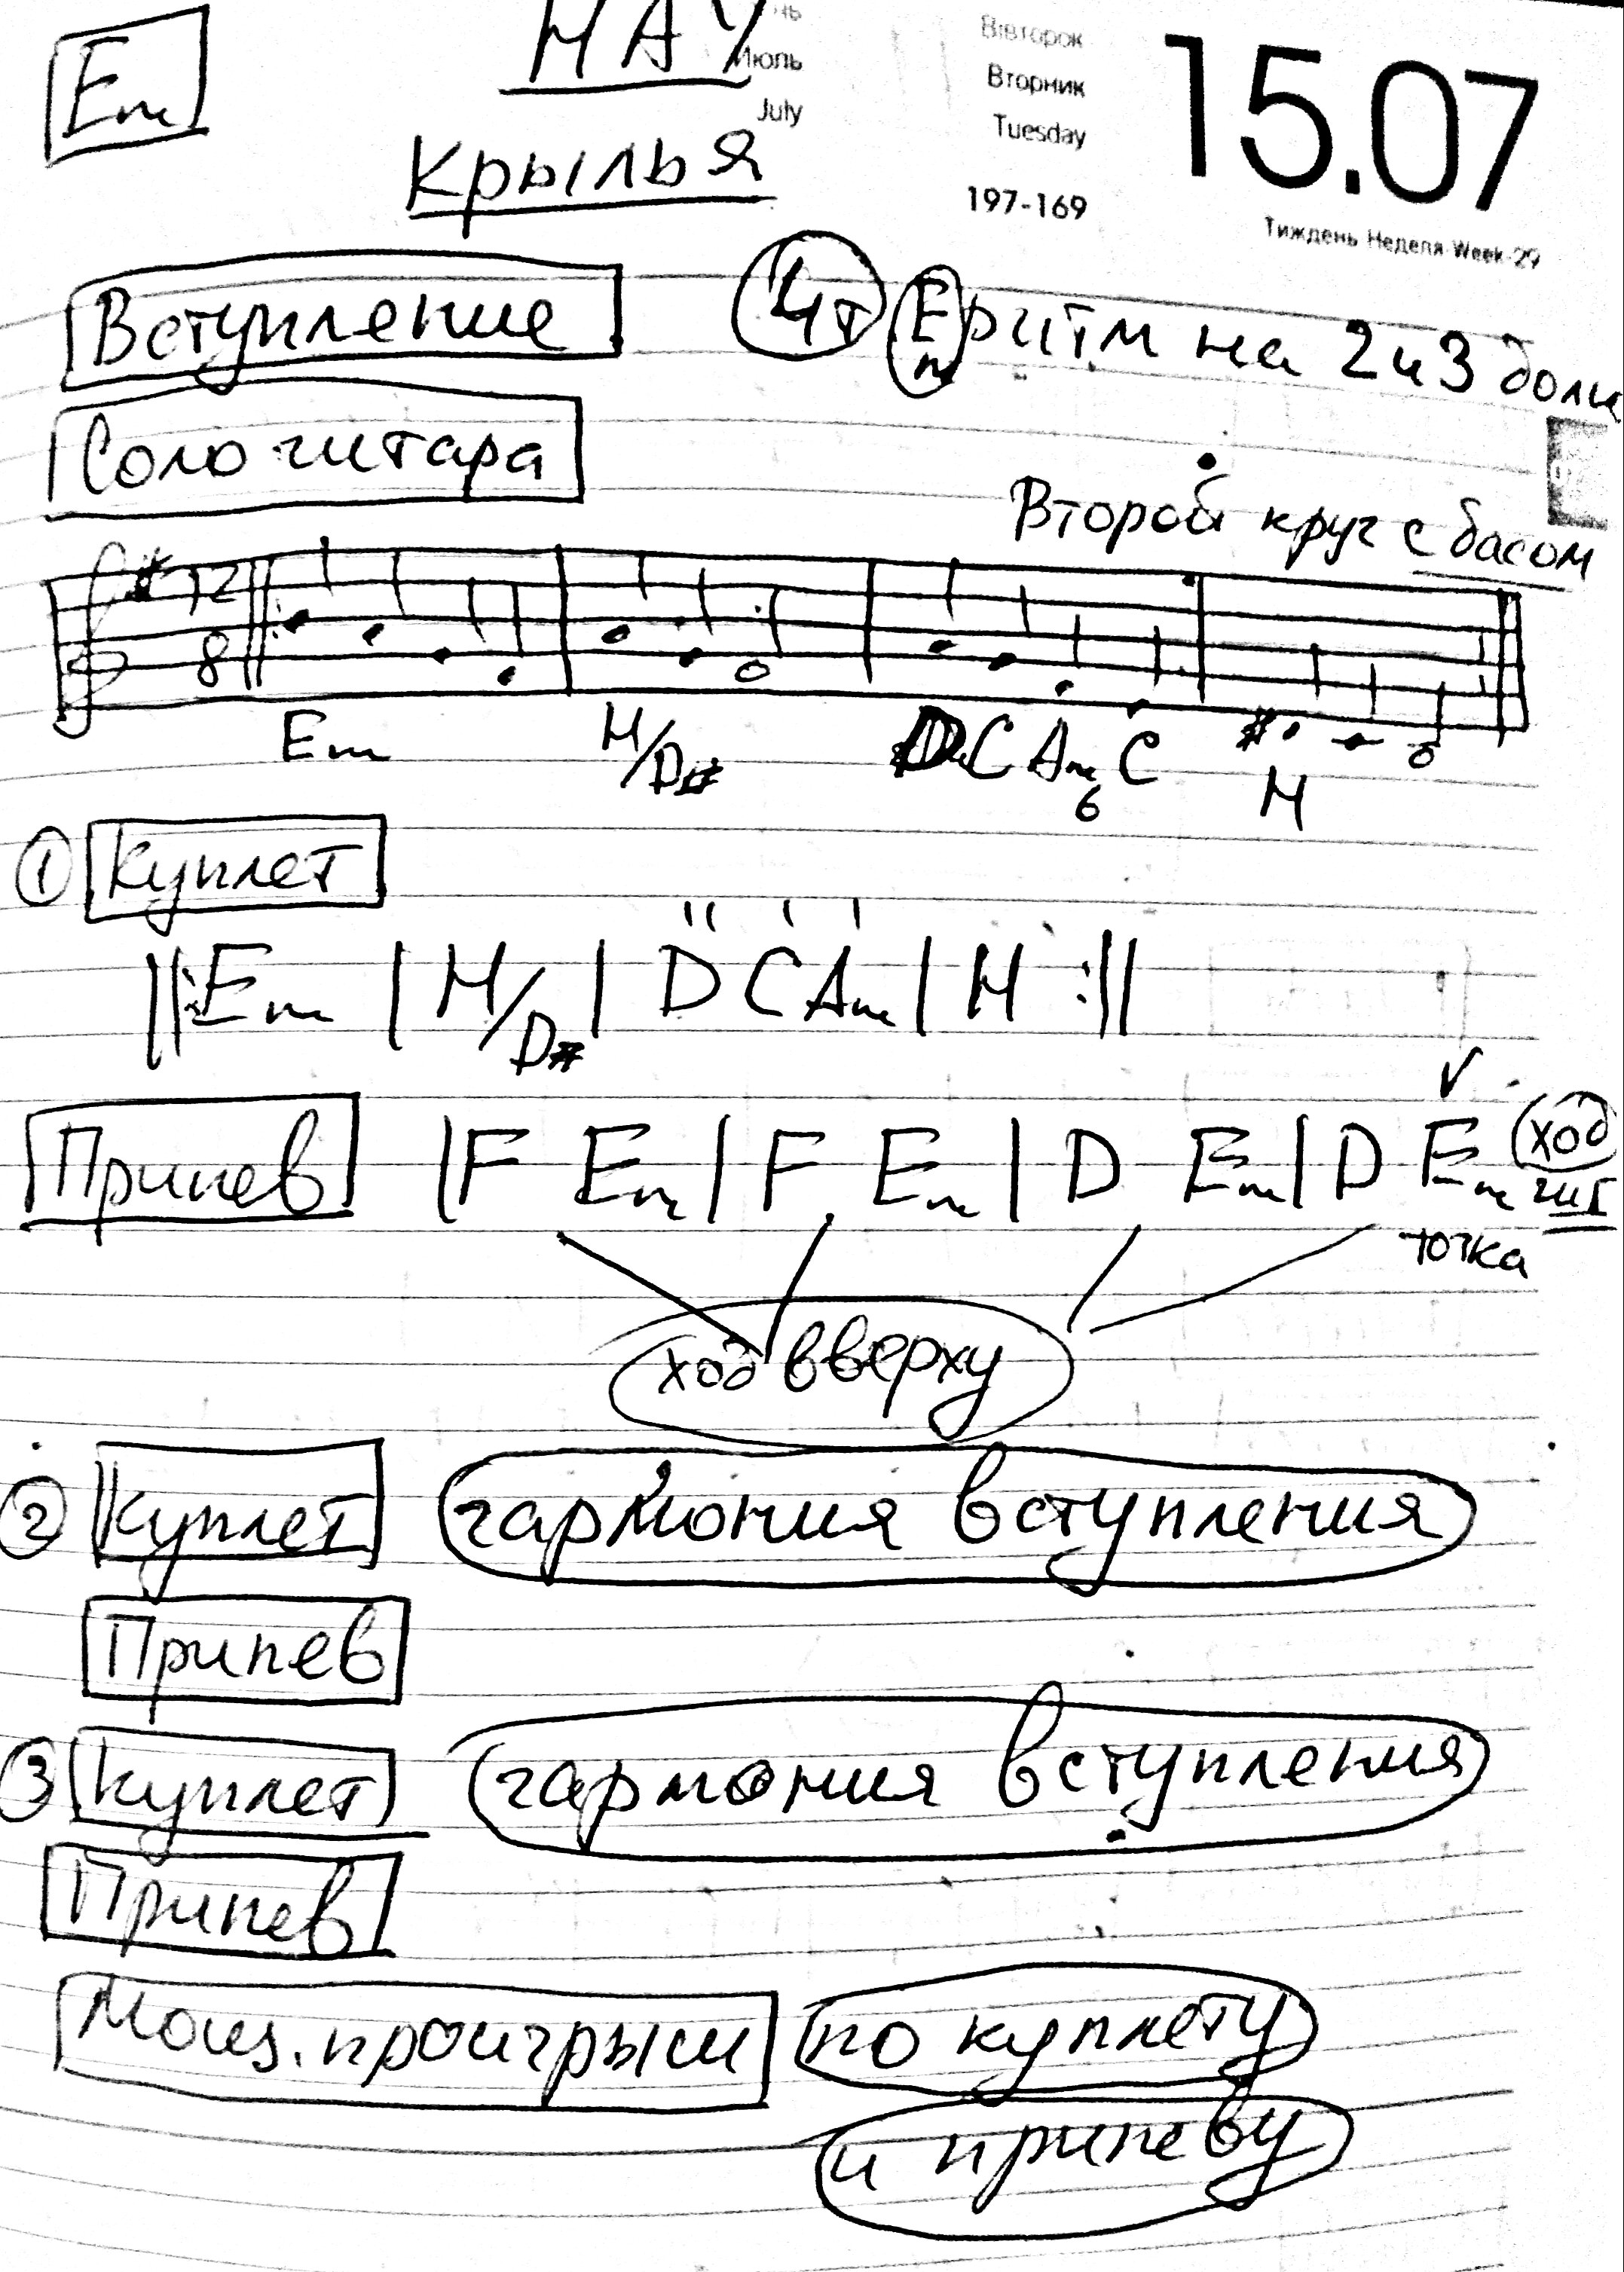 Em
НАУ
Июль
July
Вівторок
Вторник
Tuesday
197-169
15.07
Тиждень Неделя Week 29
Крылья
Вступление 4т Em ритм на 2 и 3 доли
Соло гитара
Второй круг с басом
# 12
8
Em H/D# C Am6 C # H
① Куплет
||: Em | H/D# | D C Am | H :||
Припев | F Em | F Em | D Em | D Em ход
гит
точка
ход вверху
② Куплет гармония вступления
Припев
③ Куплет гармония вступления
Припев
проигрыш по куплету
и припеву